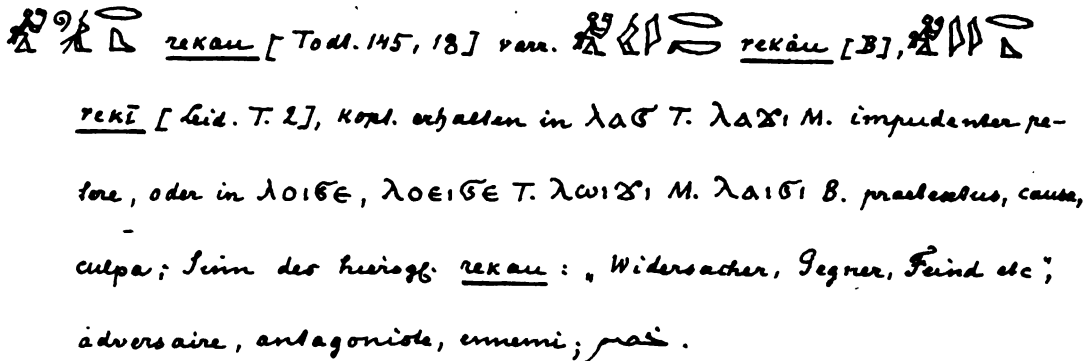 rekau [Todt. 145, 18] varr. rekȧu [B],
rekī [Leid. T. 2], kopt. erhalten in ⲗⲁϭ T. ⲗⲁϫⲓ M. impudenter pe-
tere, oder in ⲗⲟⲓϭⲉ, ⲗⲟⲉⲓϭⲉ T. ⲗⲱⲓϫⲓ M. ⲗⲁⲓϭⲓ B. praetextus, causa,
culpa; Sinn des hierogl. rekau: „Widersacher, Gegner, Feind etc“,
adversaire, antagoniste, ennemi;